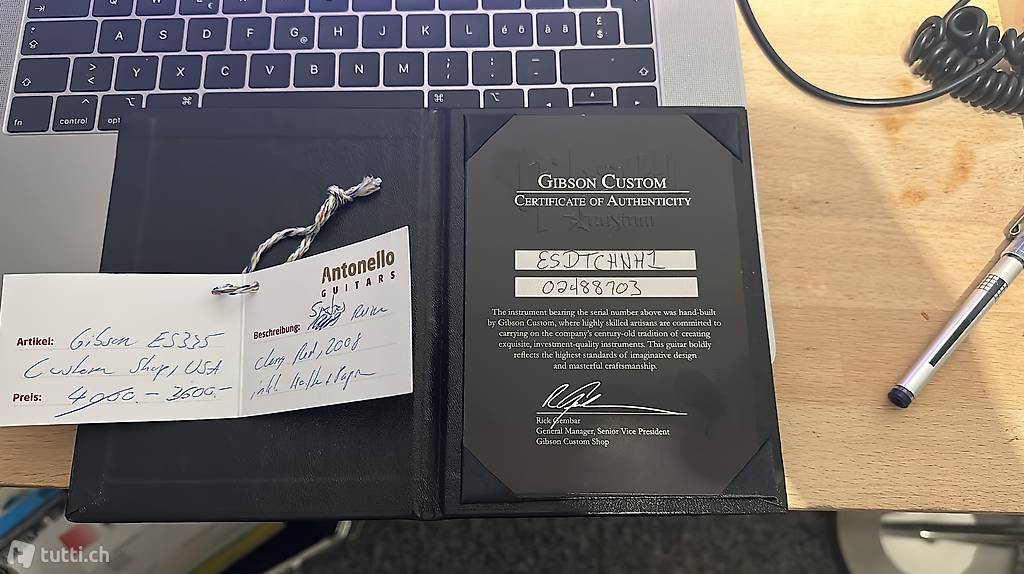 A S D F G H J K L é ö à ä £ $
@
> < Y X C V B N M ; , : . _ -
fn control ⌥ opt ⌘ ⌘ ⌥
Antonello
GUITARS
Artikel: Gibson ES335
Custom Shop, USA
Preis: 4000.- 3500.-
Beschreibung:
Cherry Red, 2008
inkl. Koffer & Papn
GIBSON CUSTOM
CERTIFICATE OF AUTHENTICITY
custom
ESDTCHNH1
02488703
The instrument bearing the serial number above was hand-built
by Gibson Custom, where highly skilled artisans are committed to
carrying on the company's century-old tradition of creating
exquisite, investment-quality instruments. This guitar boldly
reflects the highest standards of imaginative design
and masterful craftsmanship.
Rick Gembar
General Manager, Senior Vice President
Gibson Custom Shop
tutti.ch